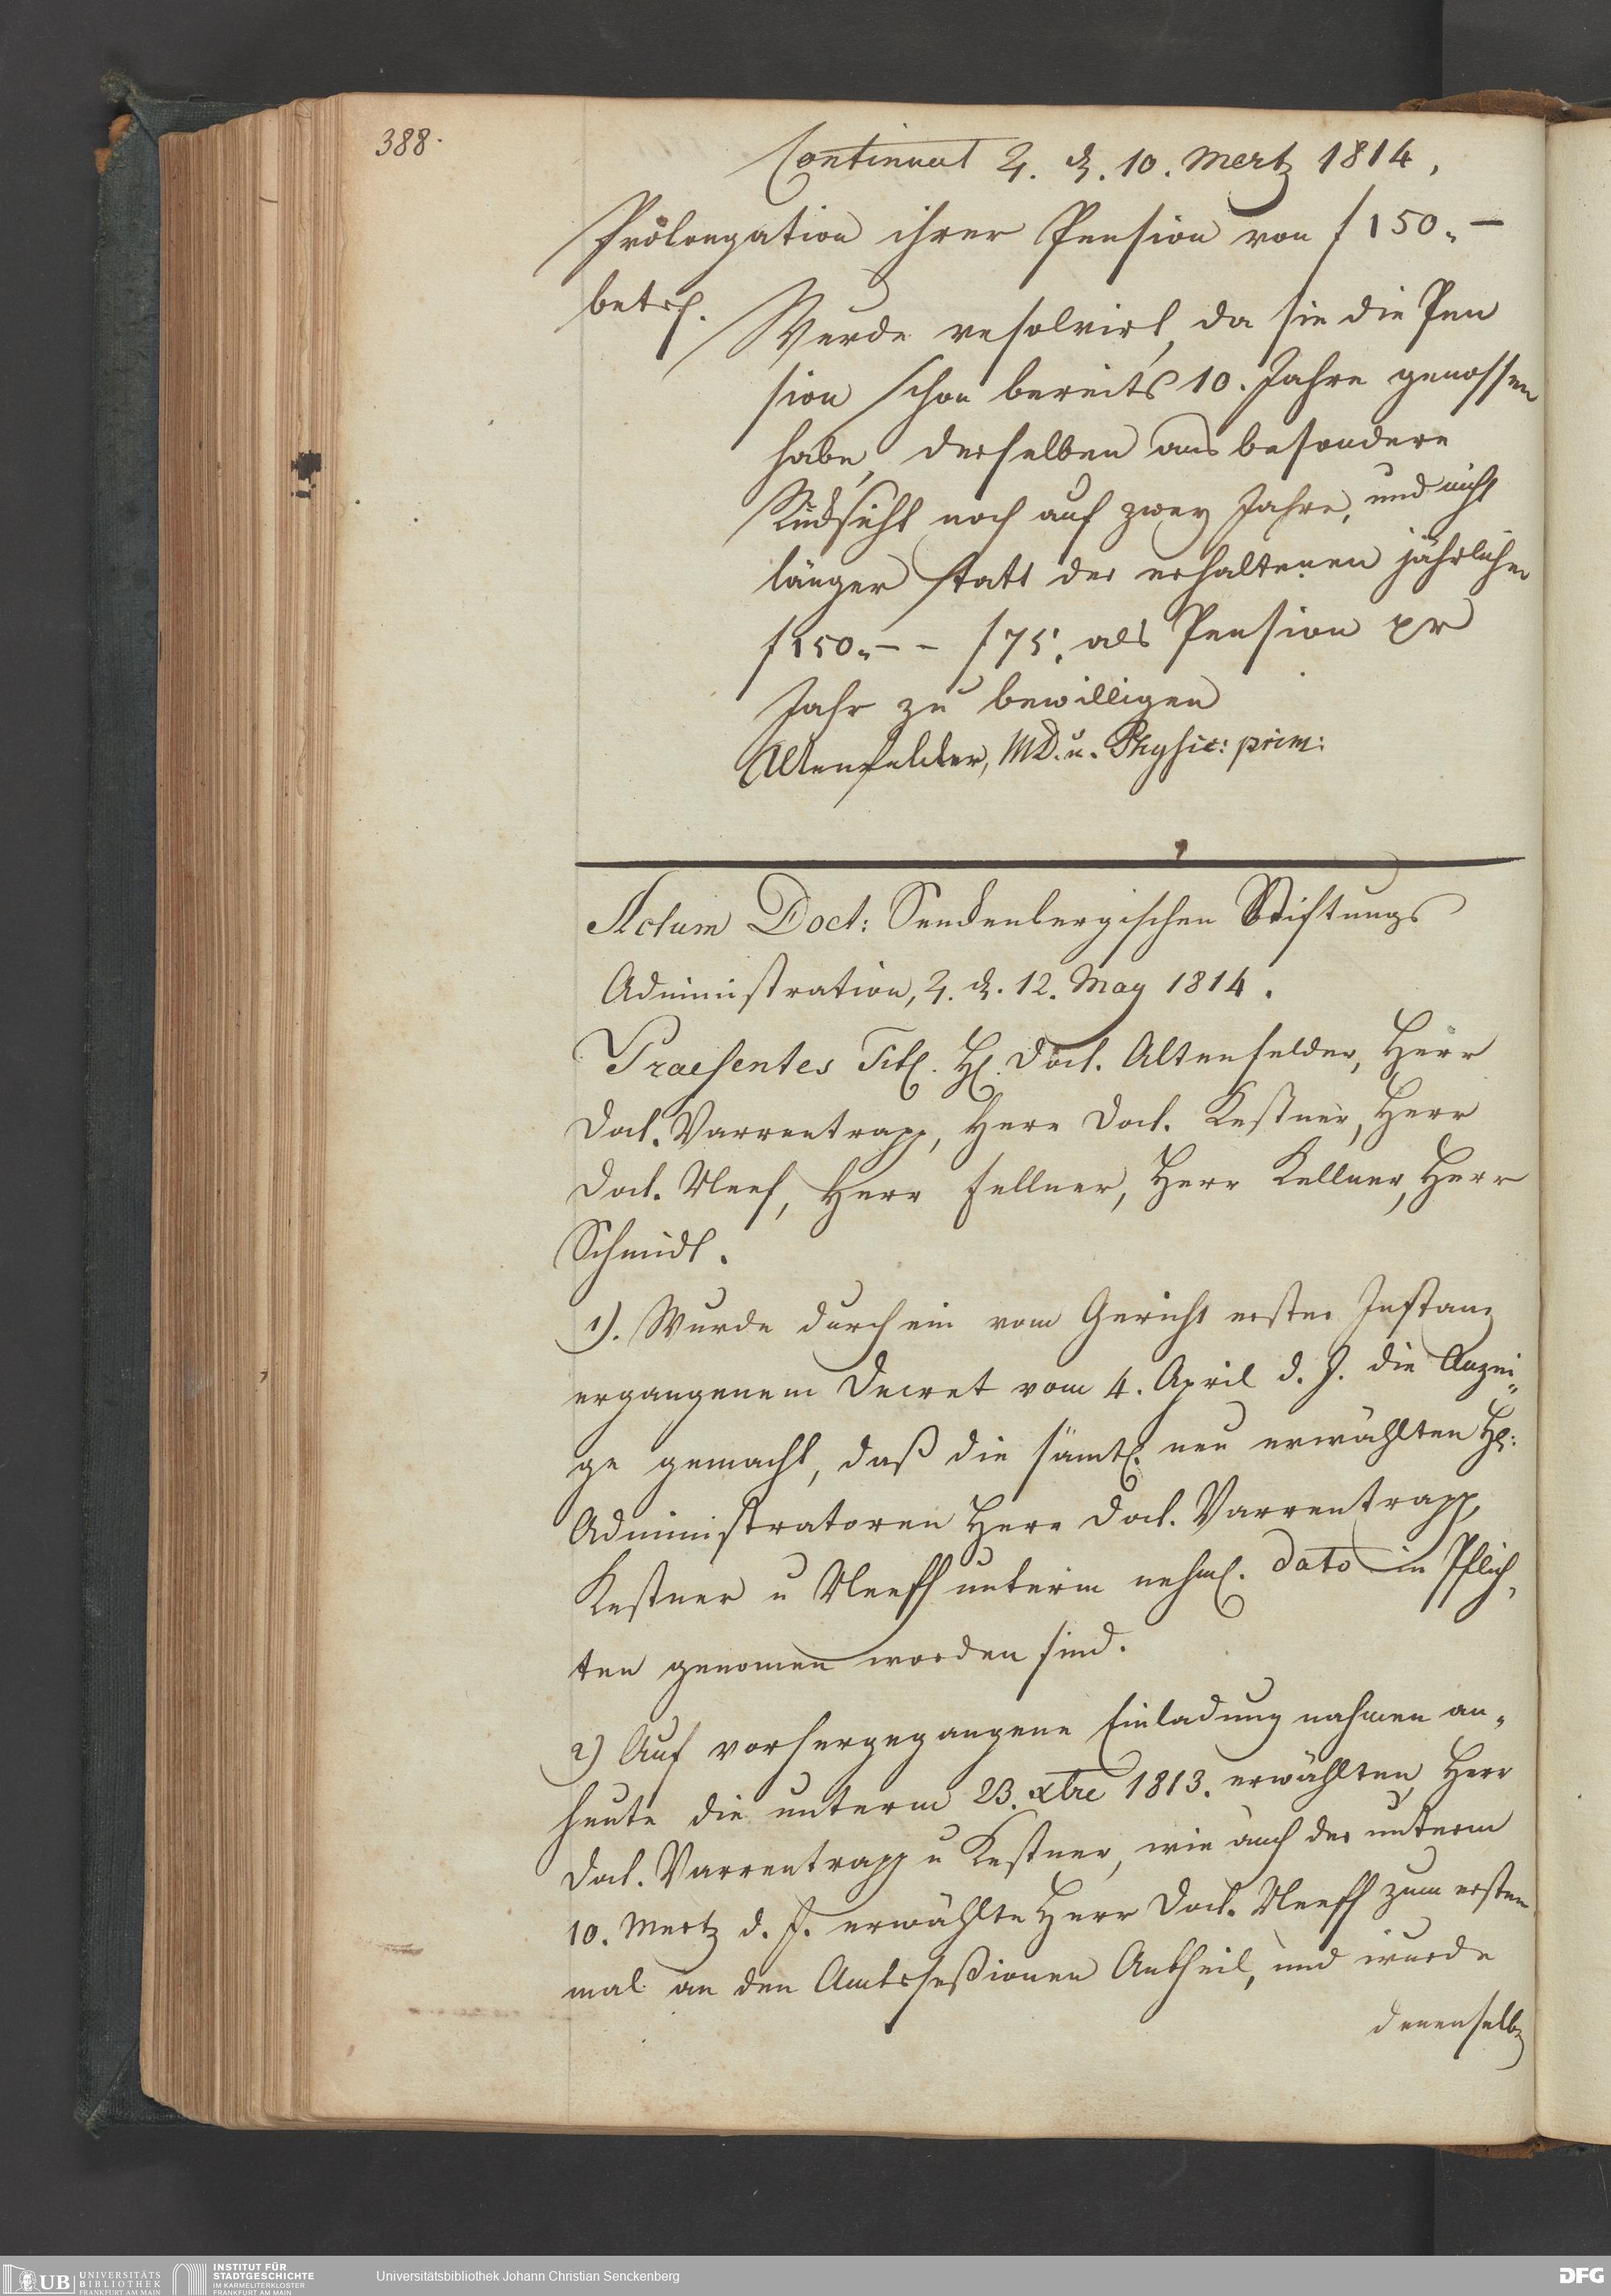 388.
Continuat ♃. d. 10. Mertz 1814.
Prolongation ihrer Pension von f 150.–
betrf.
Wurde resolvirt, da sie die Pen
sion schon bereits 10. Jahre genossen
habe, derselben aus besondere
Rücksicht noch auf zwey Jahre, und nicht
länger statt der erhaltenen jährlichen
f 150.– – f 75. als Pension pr
Jahr zu bewilligen
Altenfelder, MD. u. Physic: prim:
Actum Doct: Senckenbergischen Stiftungs
Administration, ♃. d. 12. May 1814.
Praesentes Titl. H. Doct. Altenfelder, Herr
Doct. Varrentrapp, Herr Doct. Kestner, Herr
Doct. Neef, Herr Fellner, Herr Kellner, Herr
Schmidt.
1). Wurde durch ein vom Gericht erster Instanz
ergangenem Decret vom 4. April d. J. die Anzei„
ge gemacht, daß die sämtl. neu erwählten HH:
Administratoren Herr Doct. Varrentrapp,
Kestner u Neeff unterm nehml. dato in Pflich„
ten genomen worden sind.
2) Auf vorhergegangene Einladung nahmen an„
heute die unterm 23. xbre 1813. erwählten Herr
Doct. Varrentrapp u Kestner, wie auch der unterm
10. Mertz d. J. erwählte Herr Doct. Neeff zum ersten
mal an den Amtsseßionen Antheil, und wurde
denenselb
UB UNIVERSITÄTS
BIBLIOTHEK
FRANKFURT AM MAIN
INSTITUT FÜR
STADTGESCHICHTE
IM KARMELITERKLOSTER
FRANKFURT AM MAIN
Universitätsbibliothek Johann Christian Senckenberg
DFG